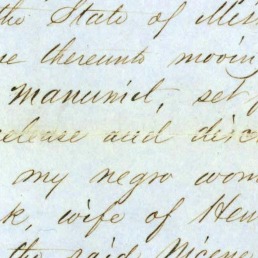 the State of Miss
me thereunto movin
manumit, set f
release and disc
my negro wom
k, wife of Hen
the said Nicene